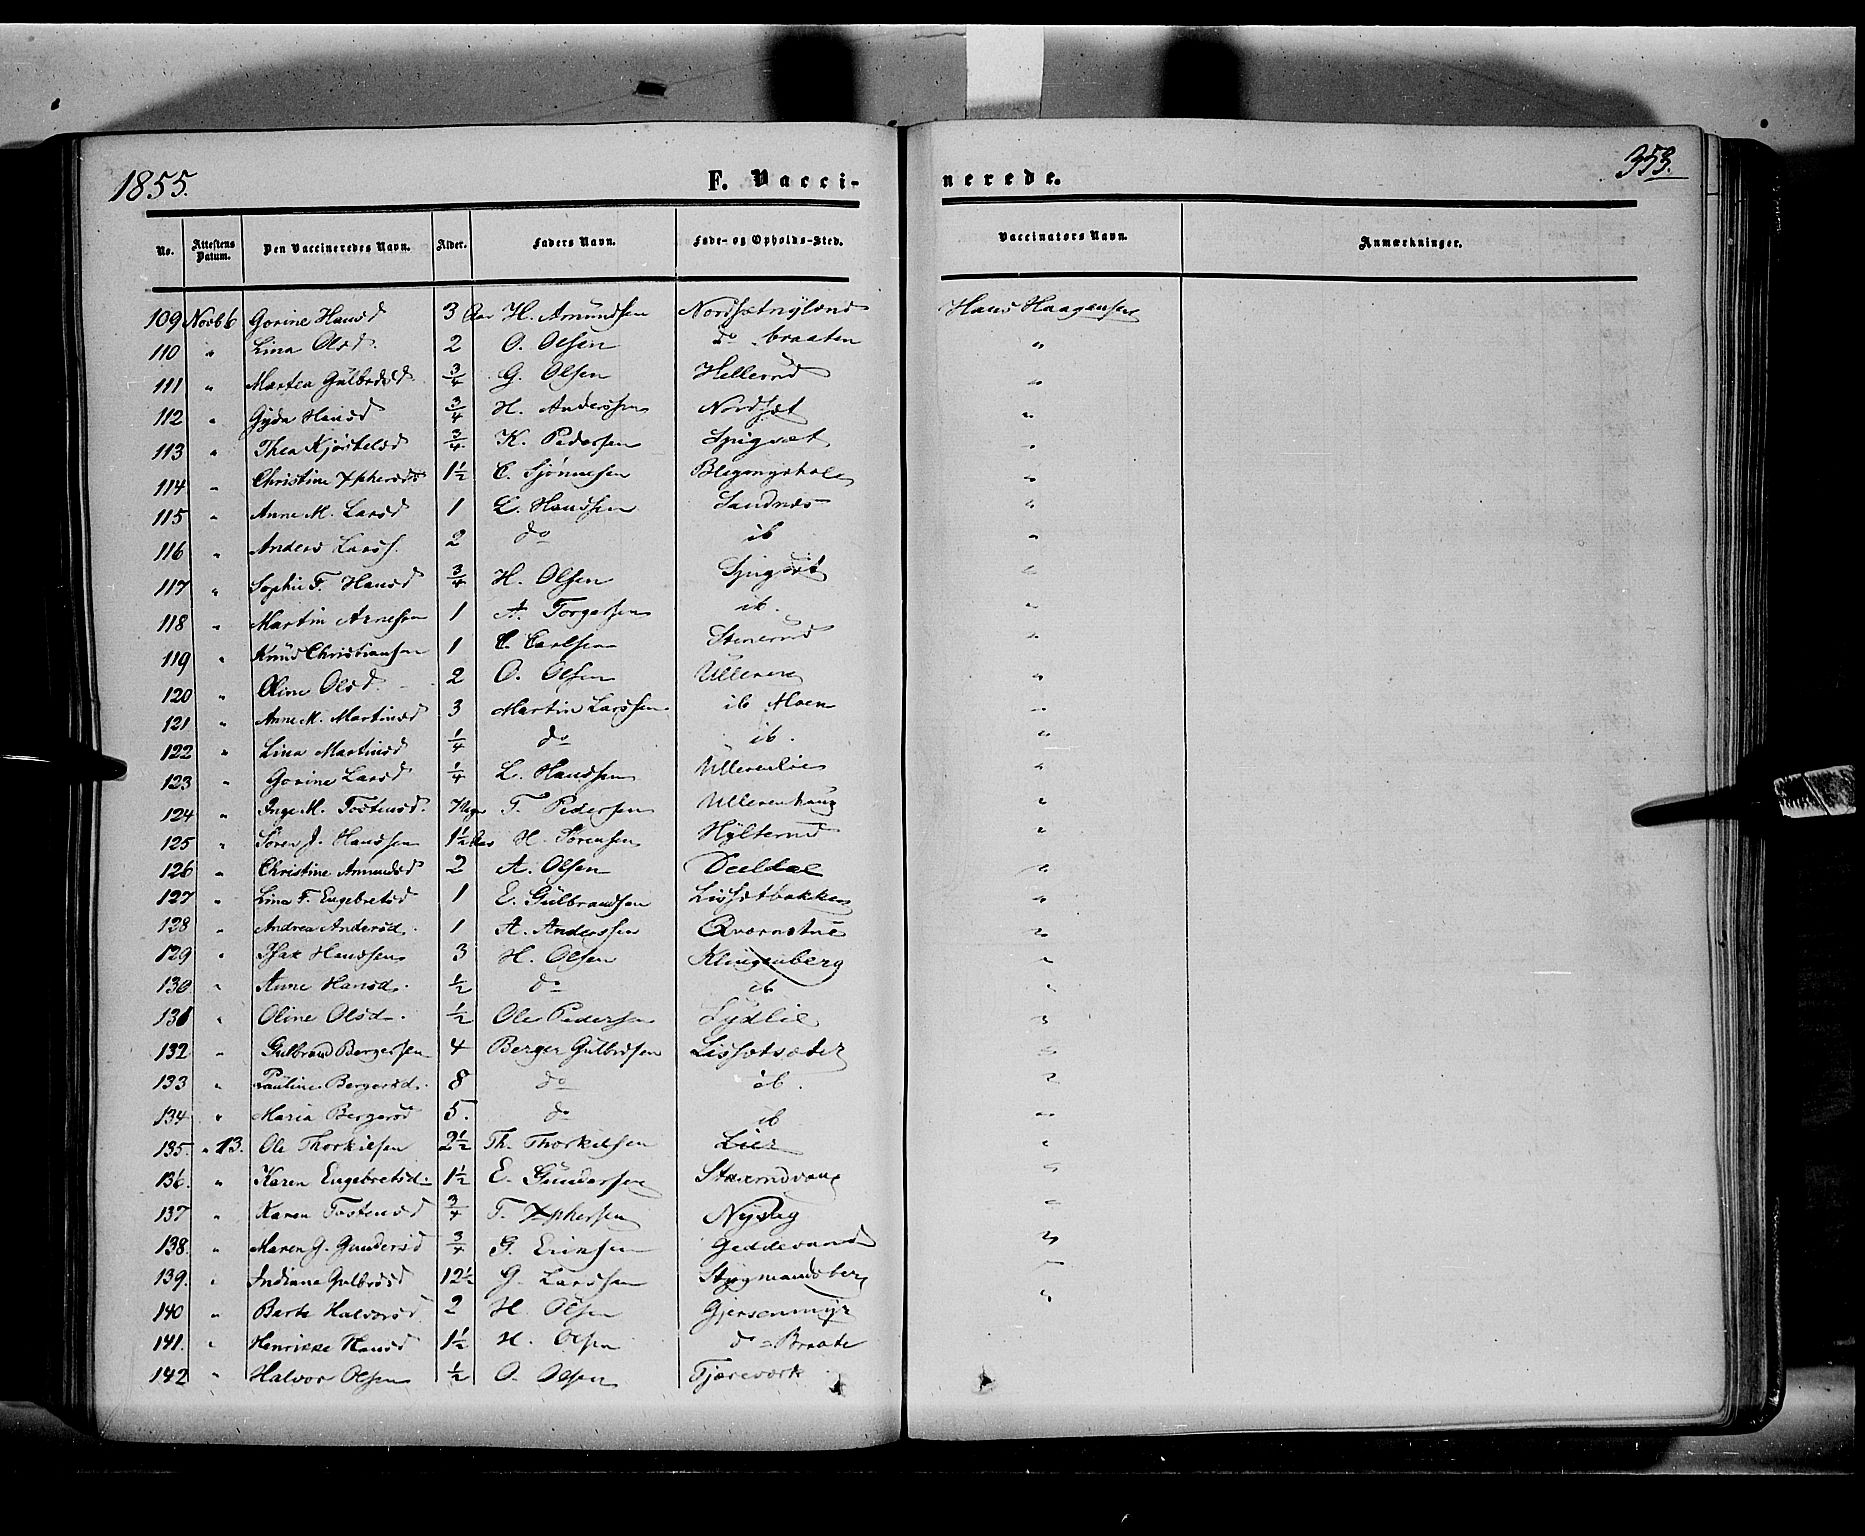 1855. F. Vacci- nerede. 353.
No. Attestens Datum. Den Vaccineredes Navn. Alder. Faders Navn. Føde- og Opholds-Sted. Vaccinators Navn. Anmærkninger.
109 Novb 6 Gorine Hansd 3 Aar H. Amundsen Nordsætnylænd Hans Haagensen
110 " Lina Olsd. 2 O. Olsen do braaten "
111 " Martea Gulbrdsd 3/4 G. Olsen Hellerud "
112 " Gyda Hansd 3/4 H. Anderssen Nordsæt "
113 " Thea Kjøstelsd 3/4 K. Pedersen Spigsæt "
114 " Christine Xphersd 1½ C. Sjønnesen "
115 " Anne M. Larsd 1 L. Hanssen Sandnæs "
116 " Anders Larss. 2 do ib "
117 " Sophie F. Hansd 3/4 H. Olsen Spigsæt "
118 " Martin Arnesen 1 A. Torgersen ib. "
119 " Knud Christiansen 1 C. Carlsen Stenerud "
120 " Oline Olsd. 2 O. Olsen Ulleren "
121 " Anne M. Martinsd 3 Martin Larssen ib Moen "
122 " Lina Martinsd 1/4 do ib. "
123 " Gorine Larsd 1/4 L. Hanssen Ullerenlie "
124 " Inge M. Tostensd. 7 Uger T. Pedersen Ullerenhaug "
125 " Søren J. Hanssen 1½ Aar H. Sørensen Hylterud "
126 " Christine Amundsd 2 A. Olsen Deeldal "
127 " Lina F. Engebretsd 1 E. Gulbrandsen Lissætbakken "
128 " Andrea Andersd. 1 A. Anderssen Qvørnstue "
129 " Isak Hanssen 3 H. Olsen Klingenberg "
130 " Anne Hansd. ½ do ib "
131 " Oline Olsd. ½ Ole Pedersen Lydlie "
132 " Gulbrand Bergersen 4 Berger Gulbrdsen Lissætsæter "
133 " Pauline Bergersd. 8 do ib. "
134 " Maria Bergersd 5. do ib "
135. " 13. Ole Thorkilsen 2½ Th. Thorkilsen Lier "
136. " Karen Engebretsd. 1½ E. Gundersen "
137 " Karen Tostensd 3/4 T. Xphersen "
138. " Maren G. Gundersd 3/4 G. Eriksen Geddevand "
139. " Indiana Gulbrdsd 12½ G. Larssen Stygmandsberg "
140 " Berte Halvorsd 2 H. Olsen Gjersenmyr "
141. " Henrikke Hansd 1½ H. Olsen do Braate
142 " Halvor Olsen ½ O. Olsen Tjæreværk